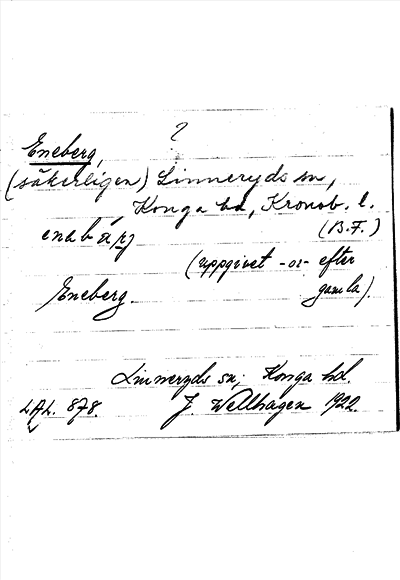 ?
Eneberg,
(säkerligen) Linneryds sn,
Konga hd, Kronob. l.
(B.F.)
(uppgivet efter
Eneberg gamla).
Linneryds sn; Konga hd.
LAL. 878. J. Wellhagen 1922.